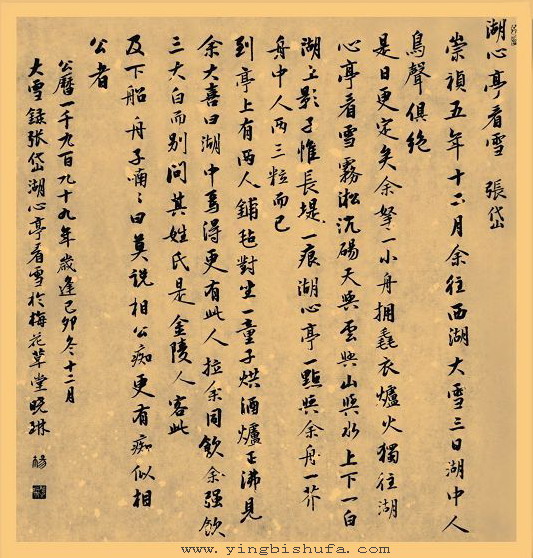 湖心亭看雪 張岱
崇禎五年十二月余往西湖大雪三日湖中人
鳥聲俱絶
是日更定矣余拏一小舟擁毳衣爐火獨往湖
心亭看雪霧淞沆碭天與雲與山與水上下一白
湖上影子惟長堤一痕湖心亭一點與余舟一芥
舟中人兩三粒而已
到亭上有兩人鋪氈對坐一童子烘酒爐正沸見
余大喜曰湖中焉得更有此人拉余同飲余强飲
三大白而别問其姓氏是金陵人客此
及下船舟子喃〻曰莫說相公痴更有痴似相
公者
公曆一千九百九十九年歲逢己卯冬十二月
大雪錄張岱湖心亭看雪於梅花草堂晚琳 楊
www.yingbishufa.com